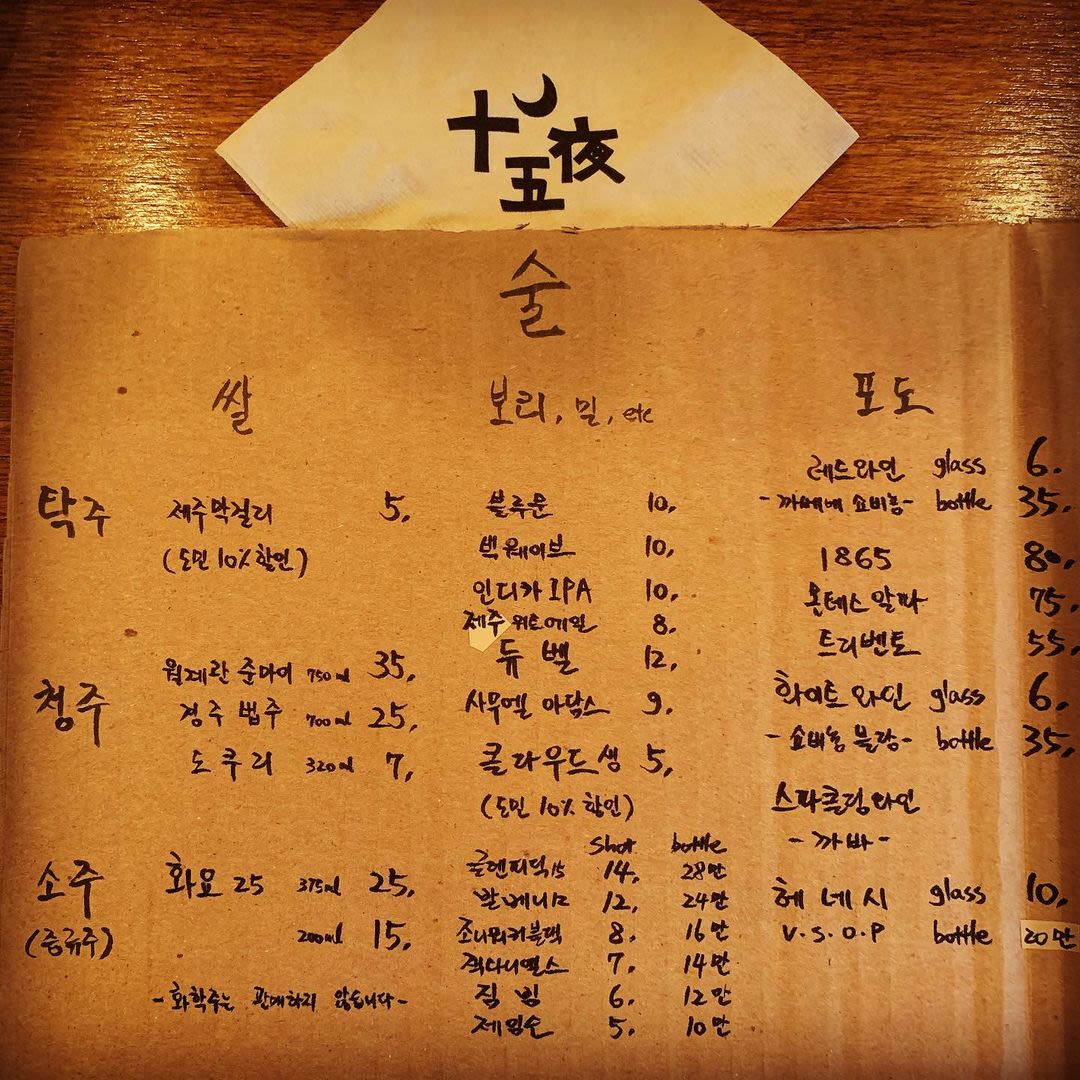 十五夜
술
쌀
탁주 제주막걸리 5,
(도민 10% 할인)
청주 월계관 준마이 750ml 35,
경주 법주 700ml 25,
도쿠리 320ml 7,
소주 화요 25 375ml 25,
(증류주) 200ml 15,
-화학주는 판매하지 않습니다-
보리, 밀, etc
블루문 10,
빅웨이브 10,
인디카 IPA 10,
제주 위트에일 8,
듀벨 12,
사무엘 아담스 9,
클라우드 생 5,
(도민 10% 할인)
shot bottle
글렌피딕 15 14, 28만
발베니 12 12, 24만
조니워커블랙 8, 16만
잭다니엘스 7, 14만
짐빔 6, 12만
제임슨 5, 10만
포도
레드와인 glass 6.
-까베네 쇼비뇽- bottle 35,
1865 80,
몬테스알파 75,
트리벤토 55,
화이트와인 glass 6,
-쇼비뇽 블랑- bottle 35,
스파클링와인
-까바-
헤네시 glass 10,
V.S.O.P bottle 20만